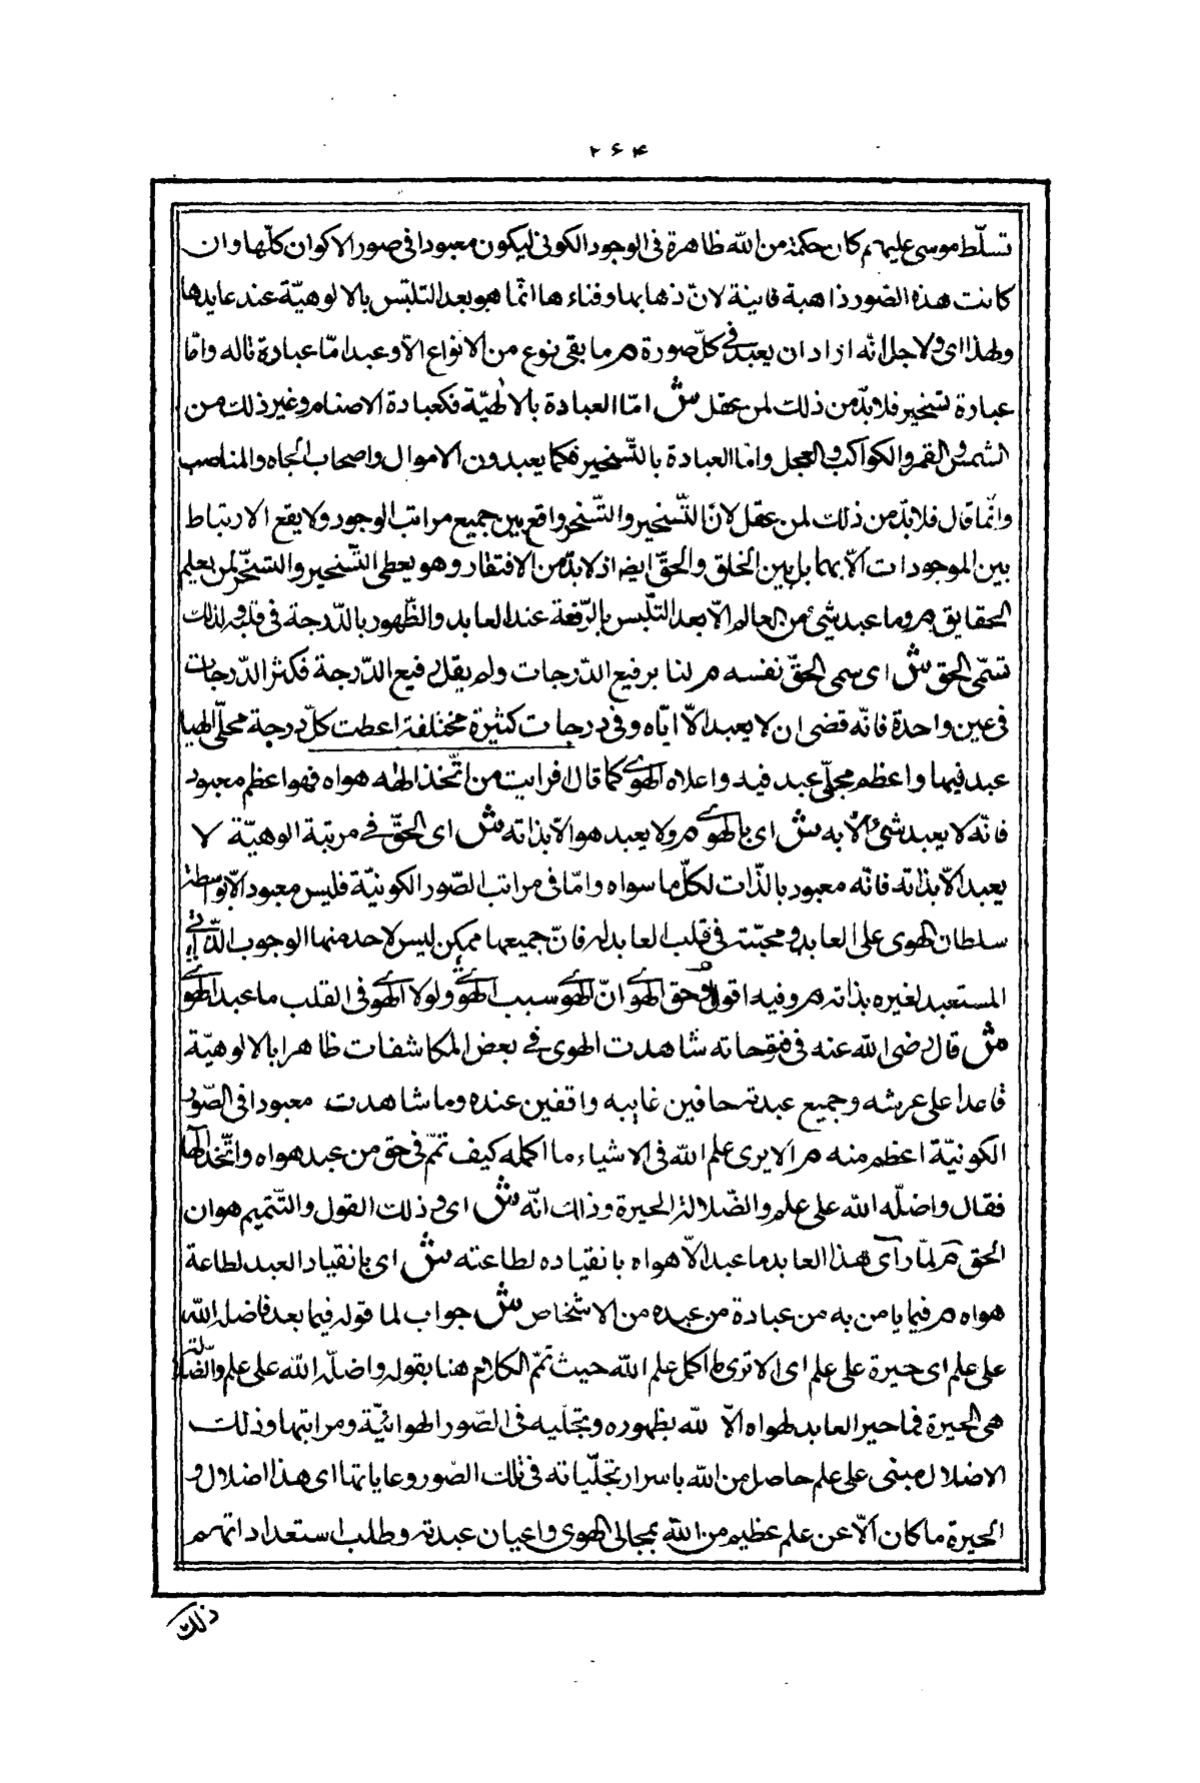 ۲۶۴
تسلّط موسى عليهم كان حكمة من الله ظاهرة فى الوجود الكونى ليكون معبودا فى صور الاكوان كلّها وان
كانت هذه الصّور ذاهبة فانية لانّ ذهابها وفناءها انّما هو بعد التلبّس بالالوهيّة عند عابدها
ولهذا اى ولاجل انّه اراد ان يعبد فى كلّ صورة م ما بقى نوع من الانواع الاّ وعبد امّا عبادة تاله وامّا
عبادة تسخير فلا بدّ من ذلك لمن عقل ش امّا العبادة بالالٰهيّة فكعبادة الاصنام وغير ذلك من
الشمس والقمر والكواكب والعجل وامّا العبادة بالتّسخير فكما يعبدون الاموال واصحاب الجاه والمناصب
وانّما قال فلا بدّ من ذلك لمن عقل لانّ التّسخير والتّسخّر واقع بين جميع مراتب الوجود ولا يقع الارتباط
بين الموجودات الاّ بهما بل بين الخلق والحقّ ايضا اذ لا بدّ من الافتقار وهو يعطى التّسخير والتسخّر لمن يعلم
الحقايق م وما عبد شىء من العالم الاّ بعد التلبّس بالرّفعة عند العابد والظّهور بالدّرجة فى قلبه ولذلك
تسمّى الحق ش اى سمى الحقّ نفسه م لنا برفيع الدّرجات ولم يقل رفيع الدّرجة فكثر الدّرجات
فى عين واحدة فانّه قضى ان لا يعبد الاّ ايّاه وفى درجات كثيرة مختلفة اعطت كلّ درجة مجلّى الهيا
عبد فيها واعظم مجلّى عبد فيه واعلاه الهوى كما قال افرايت من اتّخذ الٰهه هواه فهو اعظم معبود
فانّه لا يعبد شىء الاّ به ش اى بالهوى م ولا يعبد هو الاّ بذاته ش اى الحقّ فى مرتبة الوهيّة لا
يعبد الاّ بذاته فانّه معبود بالذّات لكلّ ما سواه وامّا فى مراتب الصّور الكونيّة فليس معبود الاّ بواسطة
سلطان الهوى على العابد ومحبّته فى قلب العابد له فانّ جميعها ممكن ليس لاحد منها الوجوب الذّاتى
المستعبد لغيره بذاته م وفيه اقول وحق الهوى انّ الهوى سبب الهوى ولولا الهوى فى القلب ما عبد الهوى
ش قال رضى الله عنه فى فتوحاته شاهدت الهوى فى بعض المكاشفات ظاهرا بالالوهيّة
قاعدا على عرشه وجميع عبدته حافين عليه واقفين عنده وما شاهدت معبودا فى الصّور
الكونيّة اعظم منه م الا يرى علم الله فى الاشياء ما اكمله كيف تمّم فى حق من عبد هواه واتّخذه الٰها
فقال واضلّه الله على علم والضّلالة الحيرة وذلك انّه ش اى وذلك القول والتّتميم هو ان
الحق م لمّا رآى هذا العابد ما عبد الاّ هواه بانقياده لطاعته ش اى بانقياد العبد لطاعة
هواه م فيما يامر به من عبادة من عبده من الاشخاص ش جواب لما قوله فيما بعد فاضله الله
على علم اى حيرة على علم اى الا ترى ما اكمل علم الله حيث تمّم الكلام هنا بقوله واضلّه الله على علم والضّلالة
هى الحيرة فما حير العابد لهواه الاّ الله بظهوره وتجلّيه فى الصّور الهوائيّة ومراتبها وذلك
الاضلال مبنى على علم حاصل من الله باسرار تجلّياته فى تلك الصّور وغاياتها اى هذا اضلال و
الحيرة ما كان الاّ عن علم عظيم من الله بمجالى الهوى واعيان عبدته وطلب استعداداتهم
ذلك